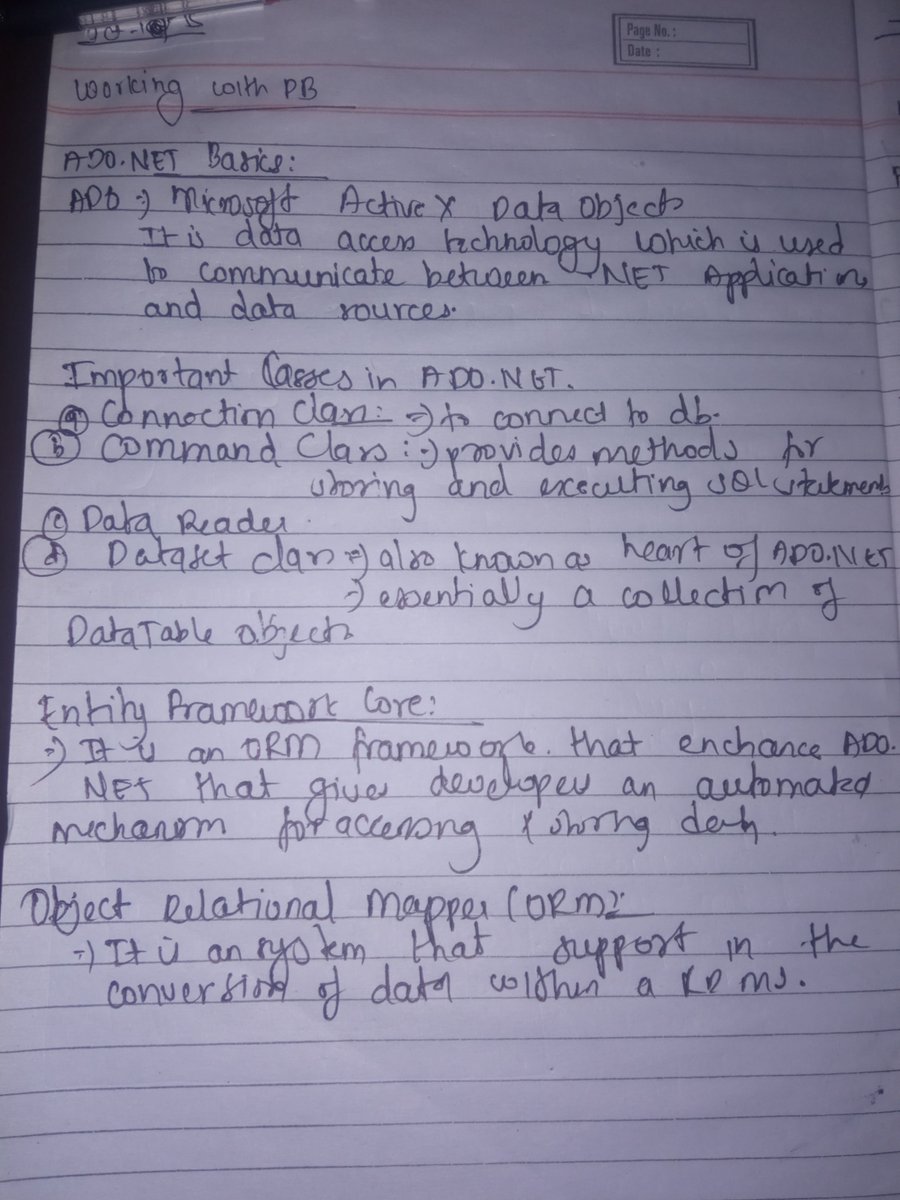 Page No.:
Date :
Working with DB
ADO.NET Basics:
ADO => Microsoft Active X Data Objects
It is data access technology which is used
to communicate between .NET Applications
and data sources.
Important Classes in ADO.NET.
(a) Connection Class: => to connect to db.
(b) Command Class: => provides methods for
storing and executing SQL statements
(c) Data Reader.
(d) Dataset class => also known as heart of ADO.NET
=> essentially a collection of
DataTable objects
Entity Framework Core:
=> It is an ORM framework. that enchance ADO.
NET that gives developer an automated
mechanism for accessing & storing data.
Object Relational Mapper (ORM):
=> It is an system that support in the
conversion of data within a RDBMS.